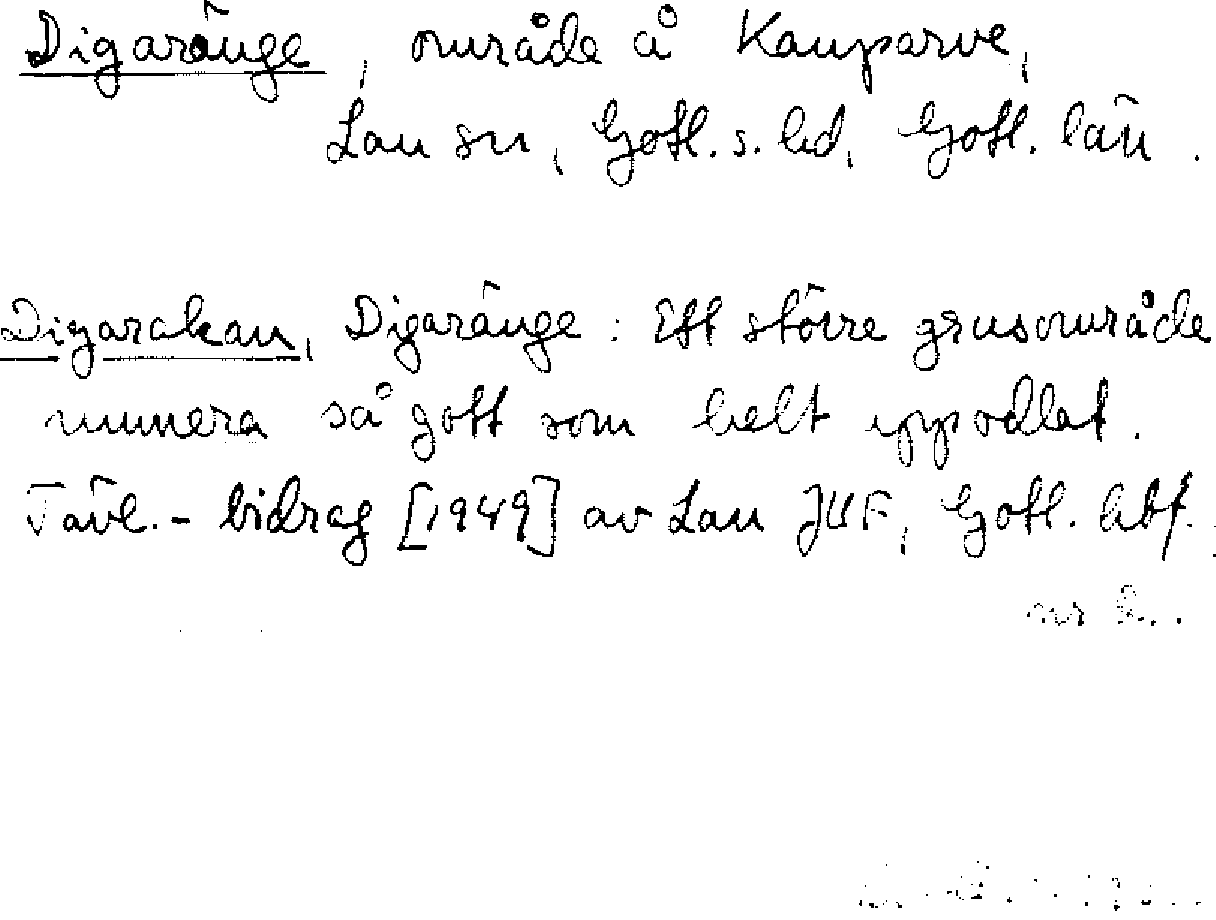 Digaränge, område å Kauparve,
Lau sn, Gotl. s. hd, Gotl. län.
Digarakan, Digaränge: Ett större grusområde
numera så gott som helt uppodlat.
Tävl.-bidrag [1949] av Lau JUF, Gotl. hbf.,
nr